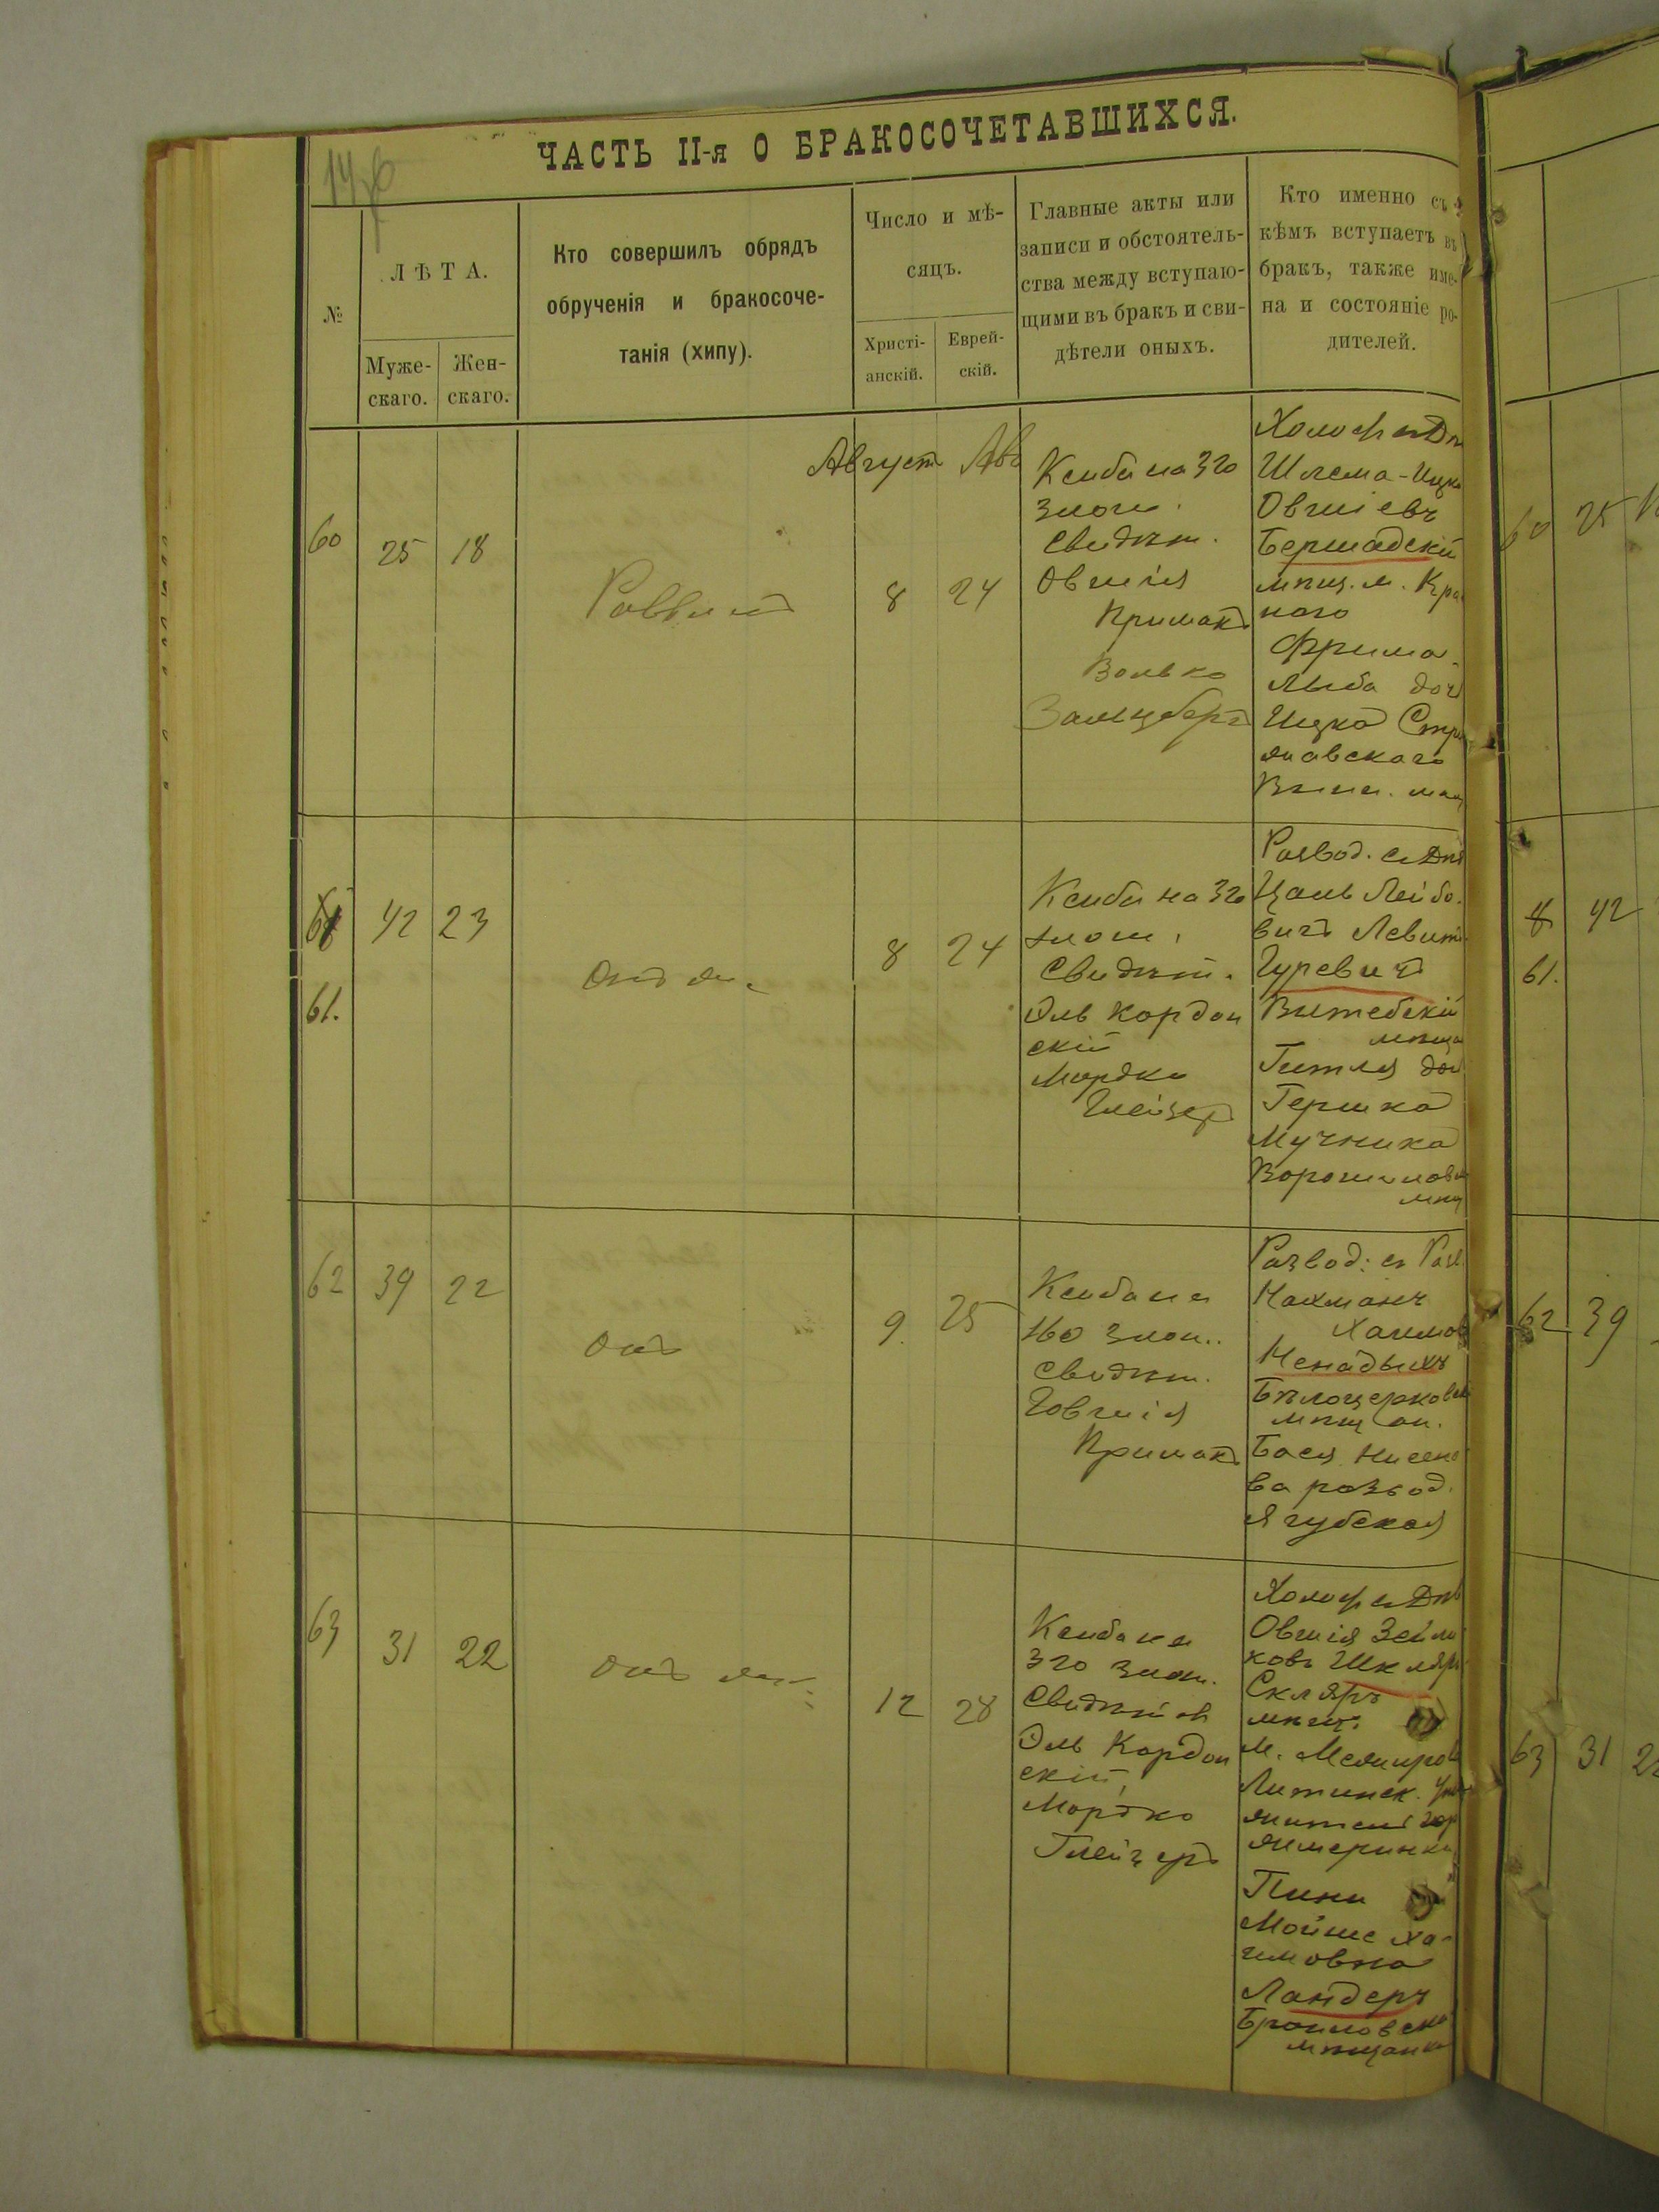 ЧАСТЬ II-я О БРАКОСОЧЕТАВШИХСЯ.
№
ЛѢТА.
Муже-
скаго.
Жен-
скаго.
Кто совершилъ обрядъ
обрученія и бракосоче-
танія (хипу).
Число и мѣ-
сяцъ.
Христі-
анскій.
Еврей-
скій.
Главные акты или
записи и обстоятель-
ства между вступаю-
щими въ бракъ и сви-
дѣтели оныхъ.
Кто именно съ
кѣмъ вступаетъ въ
бракъ, также име-
на и состояніе ро-
дителей.
60
25
18
Раввинъ
Август
Ава
8
24
Ксиба на
злот.
Свидѣт.
Овшія
Примакъ
Волько
Зальцберг
Шлема-Ицко
Овшіевъ
Бершадскій
мѣщ. м. Кра
ного
Фрима
Лыба доч
Ицка Стри
жавского
61.
42
23
Онъ же
8
24
Ксиба на
злот.
Свидѣт.
Эль Кордон
скій
Мордко
Глейзеръ
Развод. съ Дѣв
Цаль Лейбо
вичъ Левит
Гуревичъ
Витебскій
мѣща
Гитля доч
Гершка
Мучника
Ворошилов
мѣщ
62
39
22
Онъ
9.
25
Ксиба на
160 злот.
Свидѣт.
Говшія
Примакъ
Развод. съ Разв.
Нахманъ
Хаимов
Ненадыхъ
Бѣлоцерковск
мѣщан.
Бася Нисено
ва развод.
Ягубская
63
31
22
Онъ же
12
28
Ксиба на
злот.
Свидѣтели
Эль Кордон
скій,
Мордко
Глейзеръ
Холост съ Дѣв
Овшія Зейли
ковъ Шкляр
Скляръ
мѣщ.
м. Межиров
Литинск. уѣз
житель гор
Жмеринки
Мойше Ха-
имовна
Ландеръ
Браиловска
мѣщанка
60 25
61.
42
62 39
63 31 22